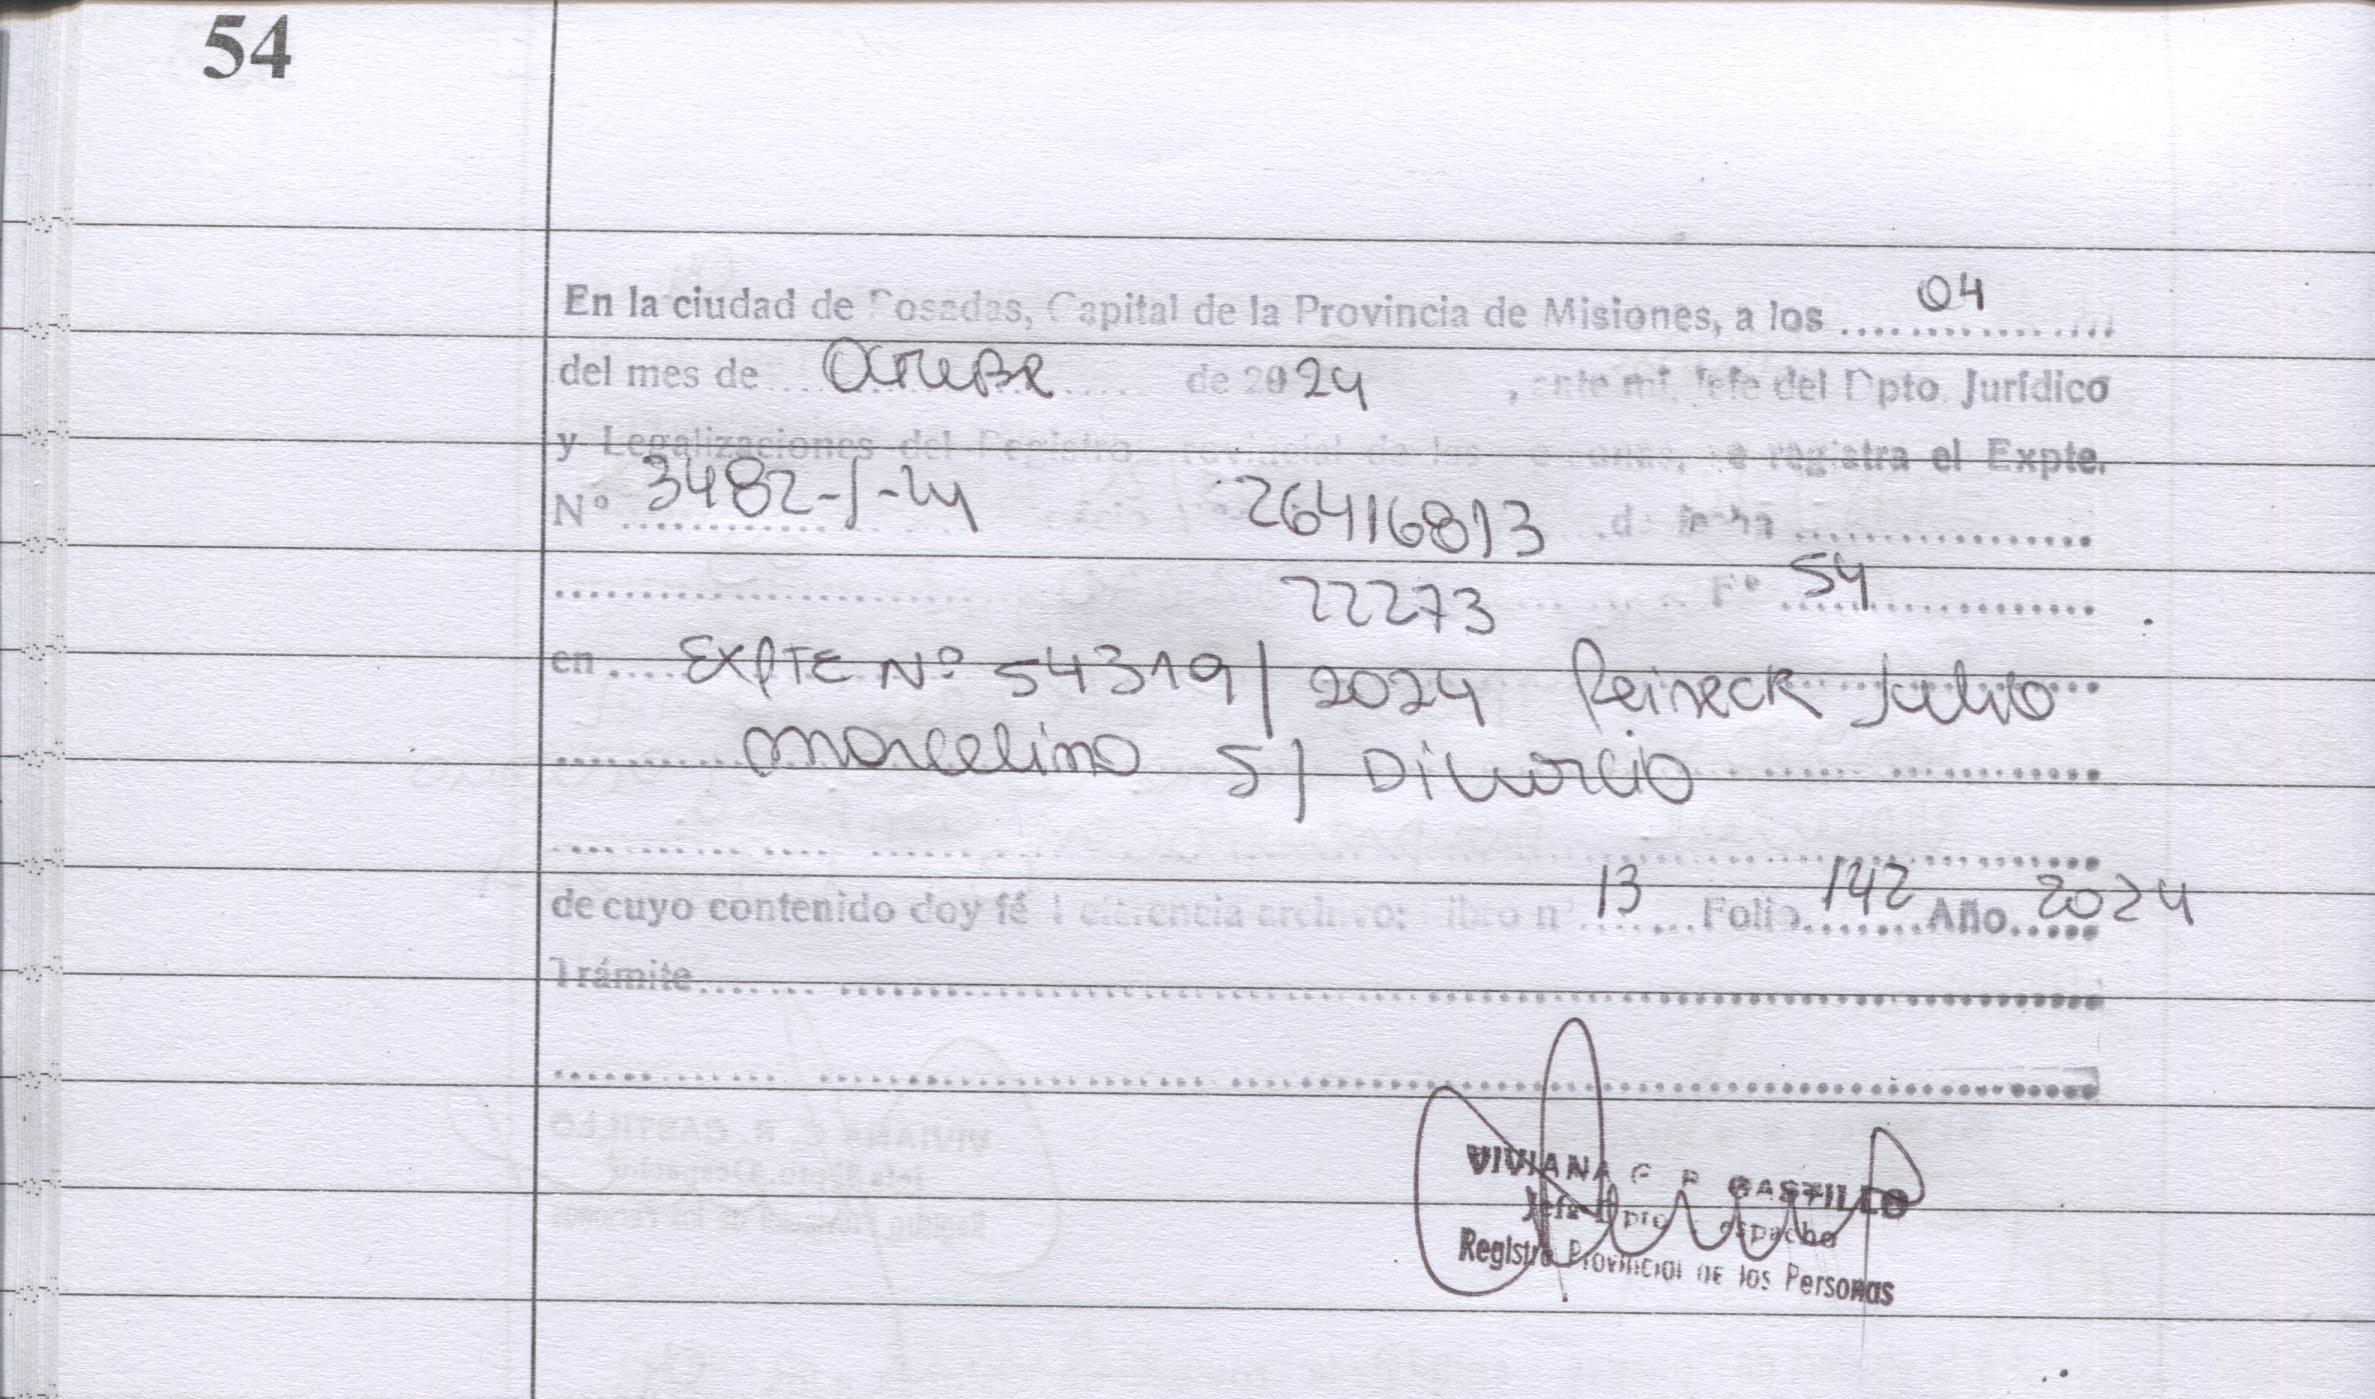 54
En la ciudad de Posadas, Capital de la Provincia de Misiones, a los 04
del mes de Octubre de 2024, ante mí, Jefe del Dpto. Jurídico
y Legalizaciones del Registro Provincial de las Personas, se registra el Expte.
Nº 3482-J-24 26416813 de fecha
22273 Fº 54
en EXPTE Nº 54319/2024 Reineck Julio
Marcelino S/ Divorcio
de cuyo contenido doy fé Referencia archivo: libro nº 13 Folio 142 Año 2024
Trámite
VIVIANA CASTILLO
Jefe Dpto. Despacho
Registro Provincial de las Personas